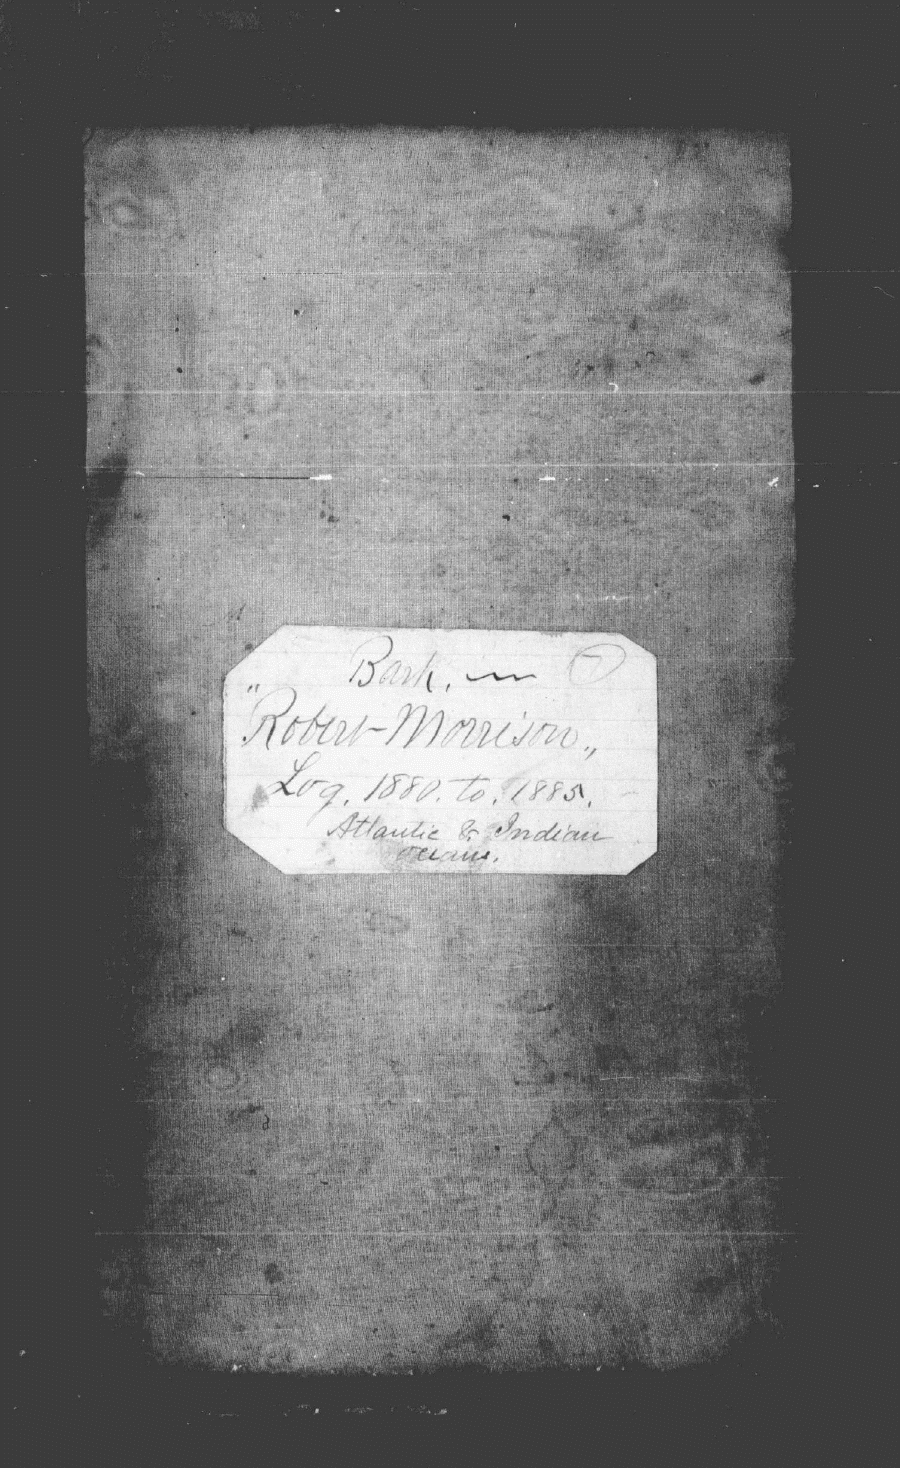 Bark.
"Robert Morrison„
Log. 1880. to. 1885.
Atlantic & Indian
Oceans.